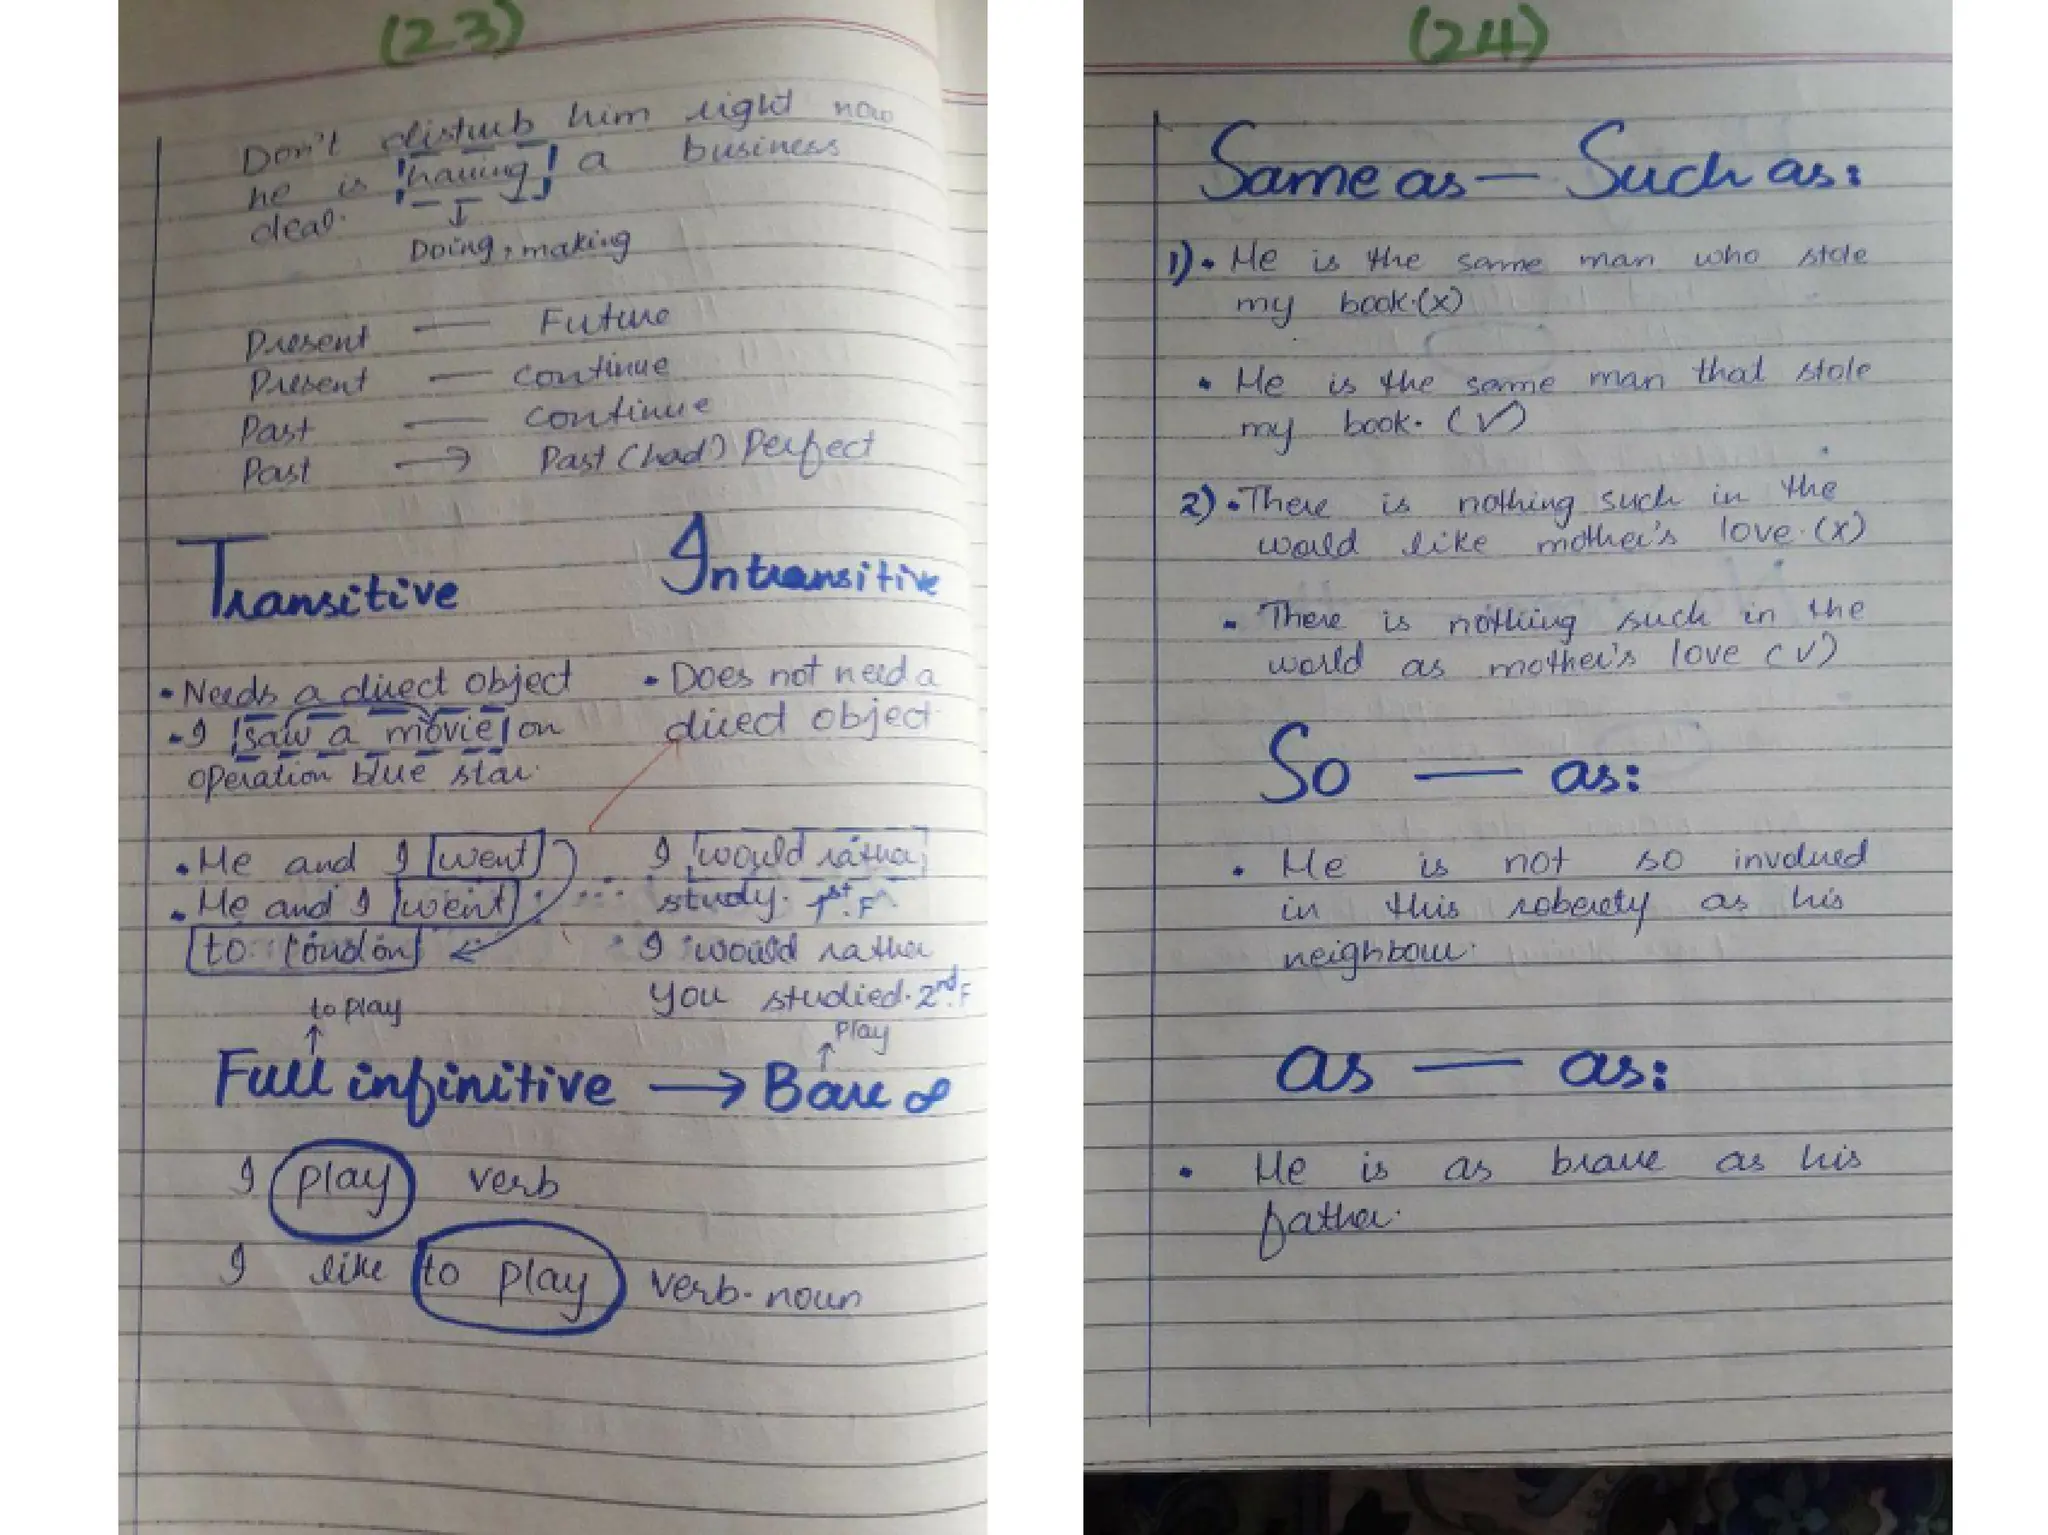 (23)
Don't disturb him right now
he is having a business
deal.
Doing, making
Present — Future
Present — continue
Past — continue
Past → Past (had) Perfect
Transitive Intransitive
• Needs a direct object
• I saw a movie on
operation blue star.
• Does not need a
direct object.
• He and I went
• He and I went
to London
I would rather
study. 1st.F
I would rather
you studied. 2nd.F
to play
play
Full infinitive → Bare ∞
I play verb
I like to play verb-noun
(24)
Same as — Such as:
1) • He is the same man who stole
my book. (x)
• He is the same man that stole
my book. (✓)
2) • There is nothing such in the
world like mother's love. (x)
• There is nothing such in the
world as mother's love (✓)
So — as:
• He is not so involved
in this roberety as his
neighbour.
as — as:
• He is as brave as his
father.